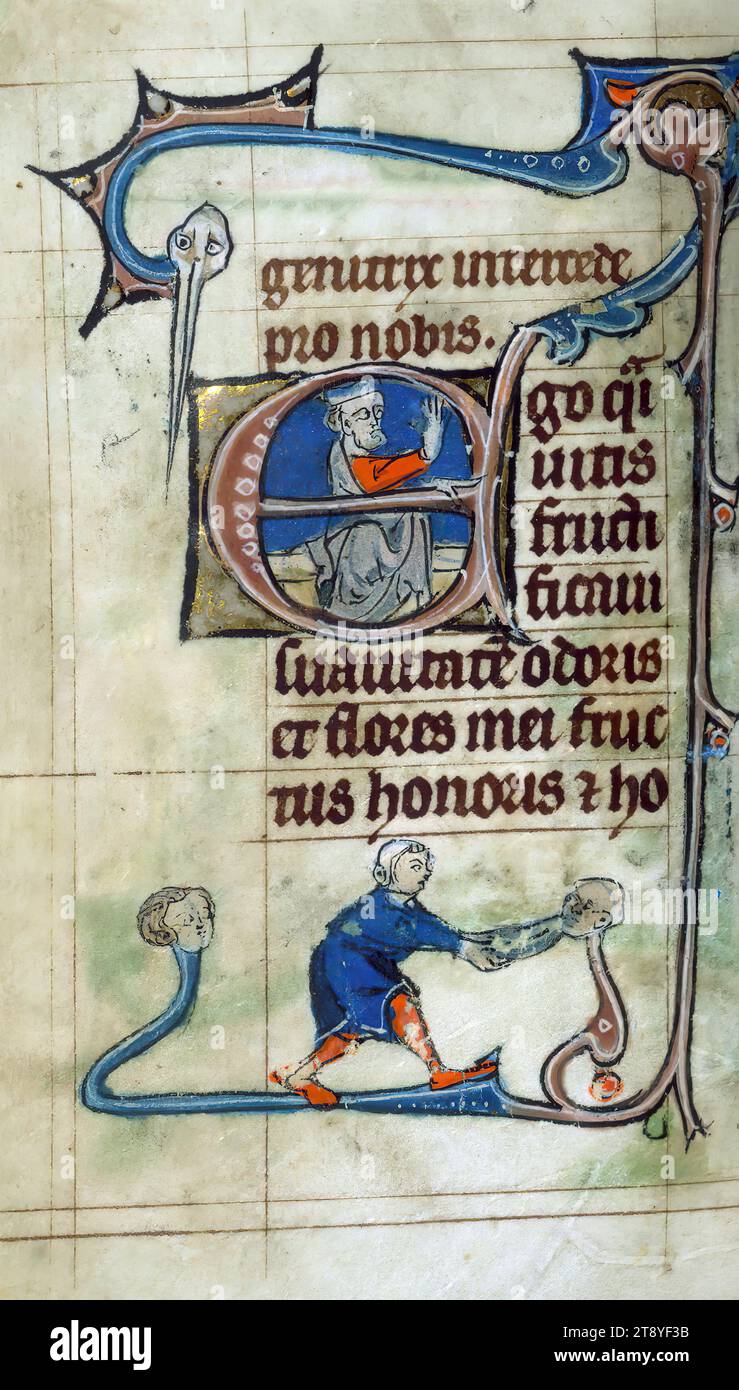 genitrix intercede
pro nobis.
Ego q̃i
uitis
fructi
ficaui
suauitatē odoris
et flores mei fruc
tus honoris ⁊ ho
alamy
Image ID: 2T8YF3B
www.alamy.com